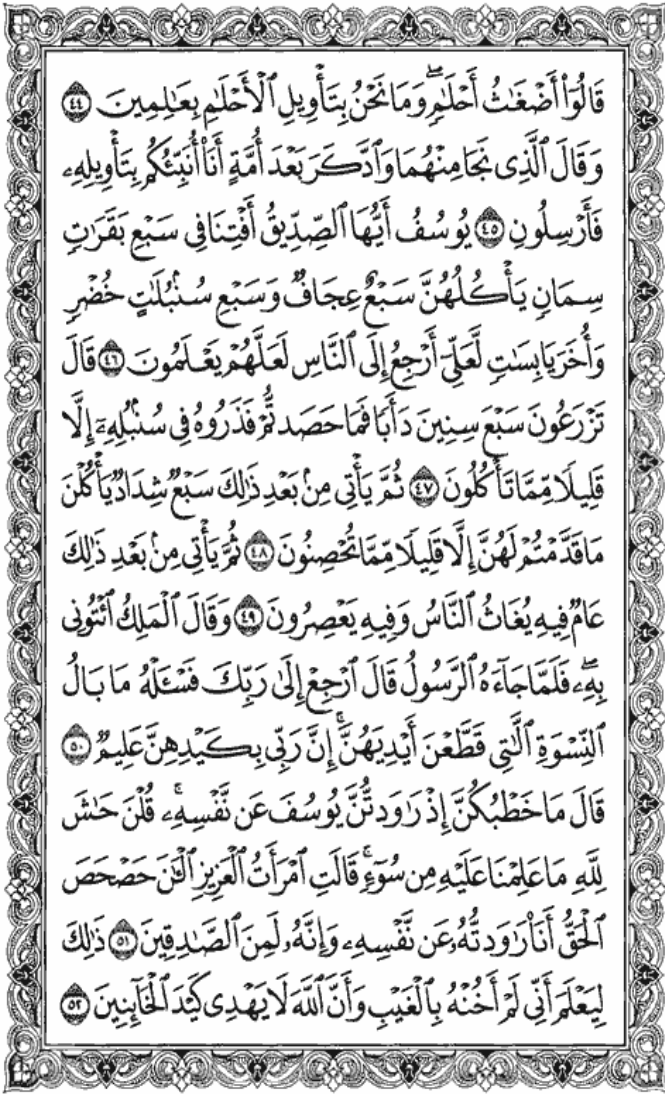 قَالُوٓاْ أَضۡغَٰثُ أَحۡلَٰمٖۖ وَمَا نَحۡنُ بِتَأۡوِيلِ ٱلۡأَحۡلَٰمِ بِعَٰلِمِينَ ٤٤
وَقَالَ ٱلَّذِي نَجَا مِنۡهُمَا وَٱدَّكَرَ بَعۡدَ أُمَّةٍ أَنَا۠ أُنَبِّئُكُم بِتَأۡوِيلِهِۦ
فَأَرۡسِلُونِ ٤٥ يُوسُفُ أَيُّهَا ٱلصِّدِّيقُ أَفۡتِنَا فِي سَبۡعِ بَقَرَٰتٖ
سِمَانٖ يَأۡكُلُهُنَّ سَبۡعٌ عِجَافٞ وَسَبۡعِ سُنۢبُلَٰتٍ خُضۡرٖ
وَأُخَرَ يَابِسَٰتٖ لَّعَلِّيٓ أَرۡجِعُ إِلَى ٱلنَّاسِ لَعَلَّهُمۡ يَعۡلَمُونَ ٤٦ قَالَ
تَزۡرَعُونَ سَبۡعَ سِنِينَ دَأَبٗا فَمَا حَصَدتُّمۡ فَذَرُوهُ فِي سُنۢبُلِهِۦٓ إِلَّا
قَلِيلٗا مِّمَّا تَأۡكُلُونَ ٤٧ ثُمَّ يَأۡتِي مِنۢ بَعۡدِ ذَٰلِكَ سَبۡعٞ شِدَادٞ يَأۡكُلۡنَ
مَا قَدَّمۡتُمۡ لَهُنَّ إِلَّا قَلِيلٗا مِّمَّا تُحۡصِنُونَ ٤٨ ثُمَّ يَأۡتِي مِنۢ بَعۡدِ ذَٰلِكَ
عَامٞ فِيهِ يُغَاثُ ٱلنَّاسُ وَفِيهِ يَعۡصِرُونَ ٤٩ وَقَالَ ٱلۡمَلِكُ ٱئۡتُونِي
بِهِۦۖ فَلَمَّا جَآءَهُ ٱلرَّسُولُ قَالَ ٱرۡجِعۡ إِلَىٰ رَبِّكَ فَسۡـَٔلۡهُ مَا بَالُ
ٱلنِّسۡوَةِ ٱلَّٰتِي قَطَّعۡنَ أَيۡدِيَهُنَّۚ إِنَّ رَبِّي بِكَيۡدِهِنَّ عَلِيمٞ ٥٠
قَالَ مَا خَطۡبُكُنَّ إِذۡ رَٰوَدتُّنَّ يُوسُفَ عَن نَّفۡسِهِۦۚ قُلۡنَ حَٰشَ
لِلَّهِ مَا عَلِمۡنَا عَلَيۡهِ مِن سُوٓءٖۚ قَالَتِ ٱمۡرَأَتُ ٱلۡعَزِيزِ ٱلۡـَٰٔنَ حَصۡحَصَ
ٱلۡحَقُّ أَنَا۠ رَٰوَدتُّهُۥ عَن نَّفۡسِهِۦ وَإِنَّهُۥ لَمِنَ ٱلصَّٰدِقِينَ ٥١ ذَٰلِكَ
لِيَعۡلَمَ أَنِّي لَمۡ أَخُنۡهُ بِٱلۡغَيۡبِ وَأَنَّ ٱللَّهَ لَا يَهۡدِي كَيۡدَ ٱلۡخَآئِنِينَ ٥٢